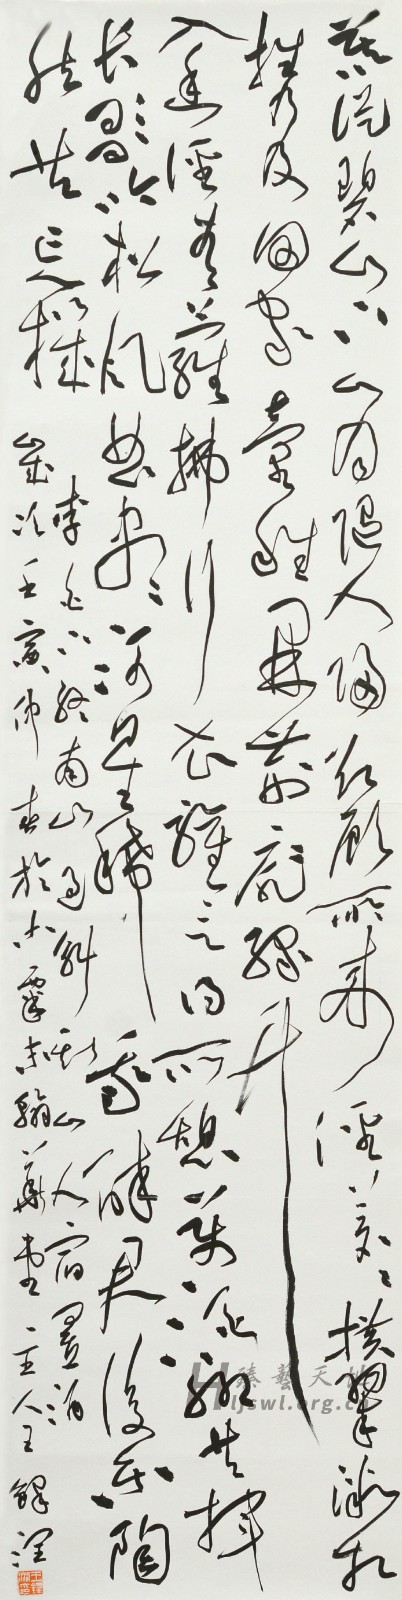 暮從碧山下山月隨人歸却顧所來徑蒼蒼橫翠微相
携及田家童稚開荊扉綠竹
入幽徑青蘿拂行衣歡言得所憩美酒聊共揮
長歌吟松風曲盡河星稀我醉君復樂陶
然共忘機
李白下終南山過斛斯山人宿置酒
歲次壬寅仲春於 主人王鐸
臻藝天地
ljswl.org.cn